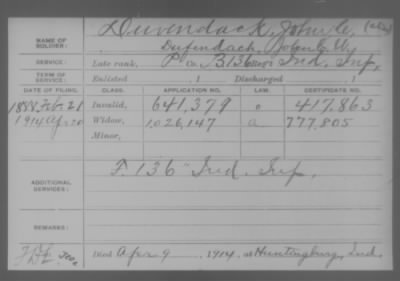 NAME OF SOLDIER: Duvendack, John C. (alias)
Dufendach, John C. W.
SERVICE: Late rank, Pt. Co. B 136 Reg't Ind. Inf.
TERM OF SERVICE: Enlisted , 1 Discharged , 1
DATE OF FILING. CLASS. APPLICATION NO. LAW. CERTIFICATE NO.
1888 Feb. 21 Invalid, 641,379 417,863
1914 Apr 20 Widow, 1,026,147 a 777,805
Minor,
ADDITIONAL SERVICES: F. 136" Ind. Inf.
REMARKS:
Died Apr 9 , 1914, at Huntingburg, Ind.